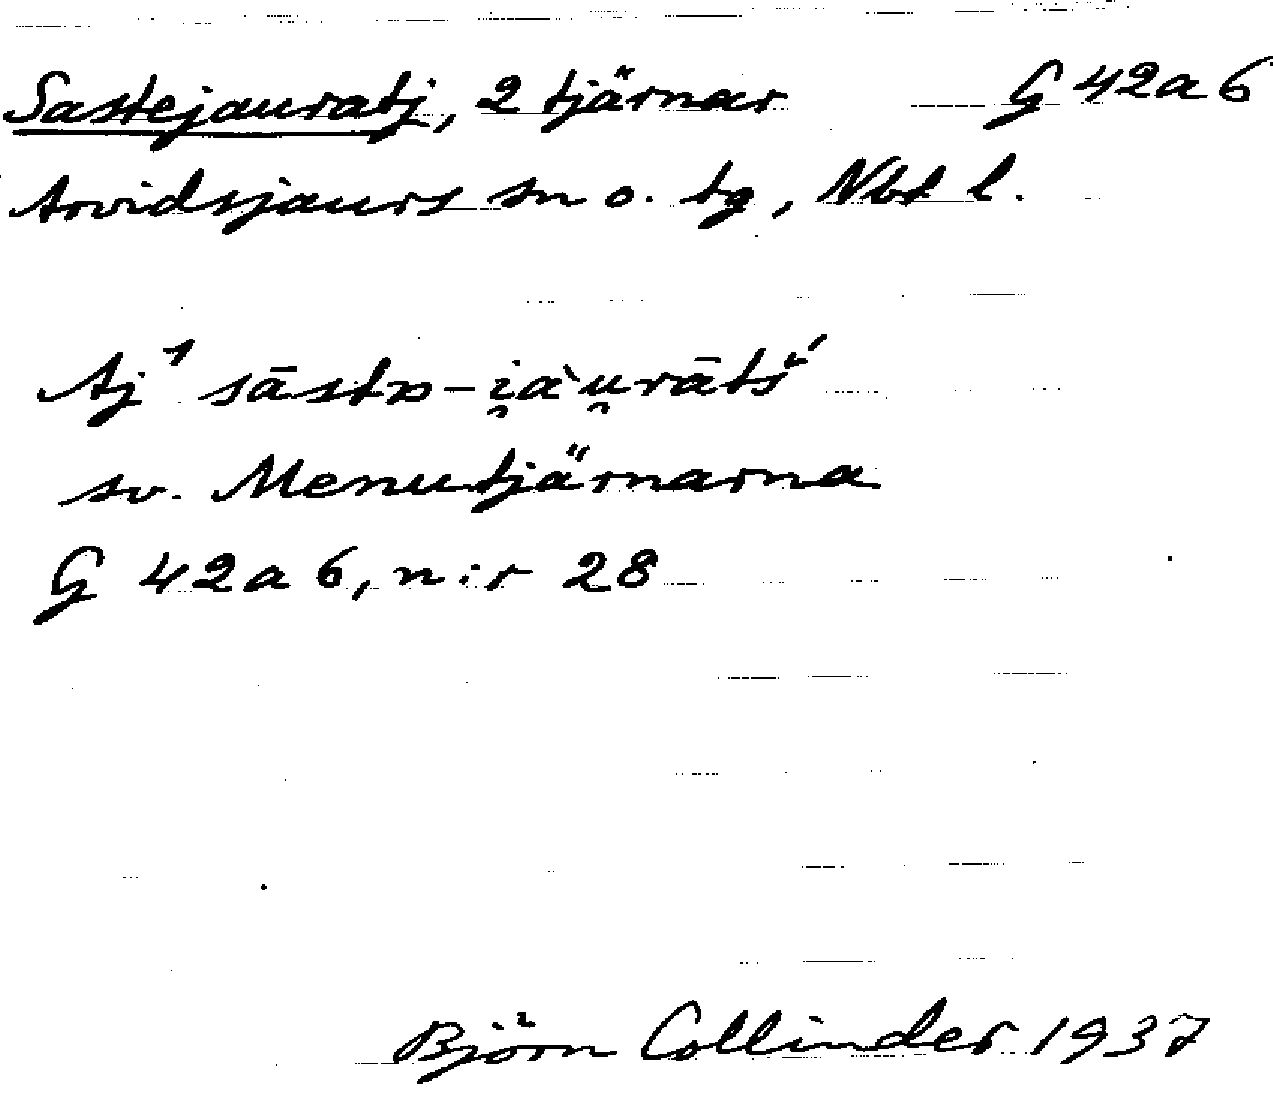 Sastejauratj, 2 tjärnar G 42a6
Arvidsjaurs sn o. tg, Nbt l.
Aj¹ sāstɒ-i̯àu̯rātš́
sv. Menutjärnarna
G 42a6, n:r 28
Björn Collinder 1937